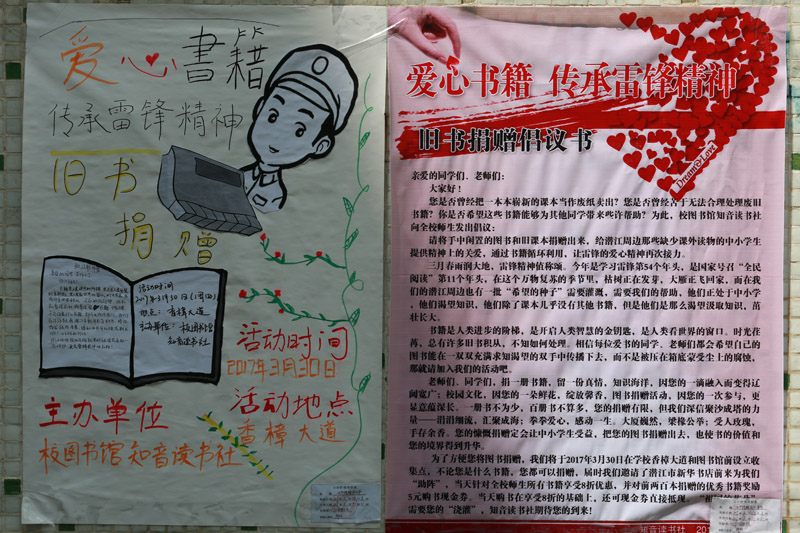 爱心書籍
传承雷锋精神
旧书
捐
赠
活动时间
2017年3月30日(周四)
地点：香樟大道
主办单位：校图书馆
知音读书社
活动时间
2017年3月30日
活动地点
香樟大道
主办单位
校图书馆 知音读书社
爱心书籍 传承雷锋精神
旧书捐赠倡议书
Dream&Love
亲爱的同学们、老师们：
大家好！
您是否曾经把一本本崭新的课本当作废纸卖出？您是否曾经苦于无法合理处理废旧
书籍？你是否希望这些书籍能够为其他同学带来些许帮助？为此，校图书馆知音读书社
向全校师生发出倡议：
请将手中闲置的图书和旧课本捐赠出来，给潜江周边那些缺少课外读物的中小学生
提供精神上的关爱，通过书籍循环利用，让雷锋的爱心精神再次接力。
三月春雨润大地，雷锋精神值称颂。今年是学习雷锋第54个年头，是国家号召“全民
阅读”第11个年头，在这个万物复苏的季节里，枯树正在发芽，大雁正飞回家，而在我
们的潜江周边也有一批“希望的种子”需要灌溉，需要我们的帮助，他们正处于中小学
，他们渴望知识，他们除了课本几乎没有其他书籍，但是他们是那么渴望汲取知识，茁
壮长大。
书籍是人类进步的阶梯，是开启人类智慧的金钥匙，是人类看世界的窗口。时光荏
苒，总有许多旧书积从，不知如何处理。相信每位爱书的同学、老师们都会希望自己的
图书能在一双双充满求知渴望的双手中传播下去，而不是被压在箱底蒙受虫上的腐蚀，
那就请加入我们的活动吧。
老师们、同学们，捐一册书籍，留一份真情，知识海洋，因您的一滴融入而变得辽
阔宽广；校园文化，因您的一朵鲜花，绽放馨香，图书捐赠活动，因您的一次参与，更
显意蕴深长。一册书不为少，百册书不算多，您的捐赠有限，但我们深信聚沙成塔的力
量——涓涓细流，汇聚成海；拳拳爱心，感动一生。大厦巍然，梁椽公举；受人玫瑰，
手存余香。您的慷慨捐赠定会让中小学生受益，把您的图书捐赠出去，也使书的价值和
您的境界得到升华。
为了方便您将图书捐赠，我们将于2017年3月30日在学校香樟大道和图书馆前设立收
集点，不论您是什么书籍，您都可以捐赠，届时我们邀请了潜江市新华书店前来为我们
“助阵”，当天针对全校师生所有书籍享受8折优惠，并对前两百本捐赠的优秀书籍奖励
5元购书现金券。当天购书在享受8折的基础上，还可现金券直接抵现。
需要您的“浇灌”，知音读书社期待您的到来！
知音读书社